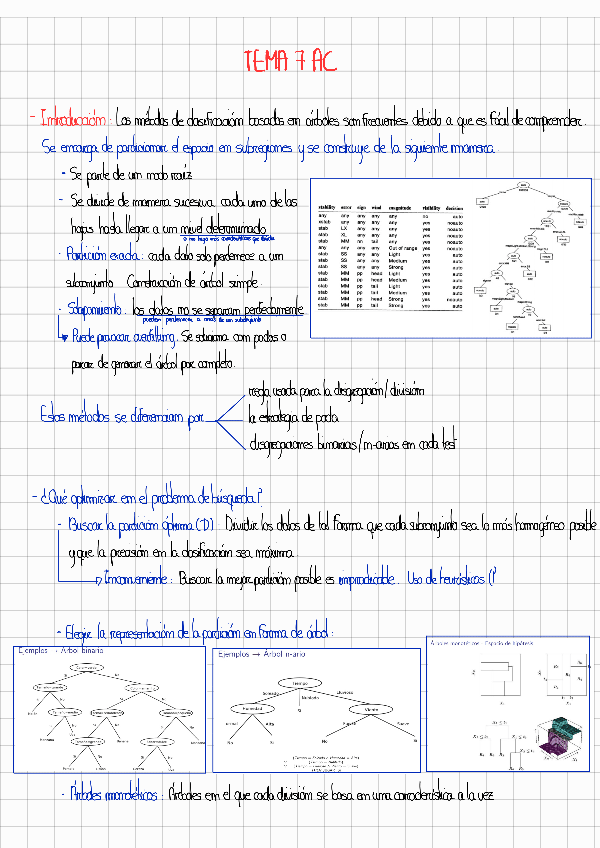 TEMA 7 AC
- Introducción: Los métodos de clasificación basados en árboles son frecuentes debido a que es fácil de comprender.
Se encarga de particionar el espacio en subregiones y se construye de la siguiente manera.
- Se parte de un nodo raíz
- Se divide de manera sucesiva cada uno de las
hojas hasta llegar a un nivel determinado
o no haya más características que
- Partición exacta: cada dato solo pertenece a un
subconjunto. Construcción de árbol simple.
- Solapamiento: los datos no se separan perfectamente
pueden pertenecer a más de un subconjunto
Puede provocar overfitting. Se soluciona con podas o
parar de generar el árbol por completo.
stability error sign wind magnitude visibility decision
any any any any any no auto
xstab any any any any yes noauto
stab LX any any any yes noauto
stab XL any any any yes noauto
stab MM nn tail any yes noauto
any any any any Out of range yes noauto
stab SS any any Light yes auto
stab SS any any Medium yes auto
stab SS any any Strong yes auto
stab MM pp head Light yes auto
stab MM pp head Medium yes auto
stab MM pp tail Light yes auto
stab MM pp tail Medium yes auto
stab MM pp head Strong yes noauto
stab MM pp tail Strong yes auto
Estos métodos se diferencian por
regla usada para la disgregación/división
la estrategia de poda
disgregaciones binarias/n-arias en cada test
- ¿Qué optimizar en el problema de búsqueda?
- Buscar la partición óptima (D). Dividir los datos de tal forma que cada subconjunto sea lo más homogéneo posible
y que la precisión en la clasificación sea máxima.
Inconveniente: Buscar la mejor partición posible es impracticable. Uso de heurísticos (?
- Elegir la representación de la partición en forma de árbol:
Ejemplos → Árbol binario
Ejemplos → Árbol n-ario
Tiempo
Soleado
Nublado
Lluvioso
Humedad
Si
Viento
Normal
Alta
Fuerte
Suave
No
Si
No
Si
Árboles monotéticos - Espacio de hipótesis
- Árboles monotéticos: Árboles en el que cada división se basa en una característica a la vez